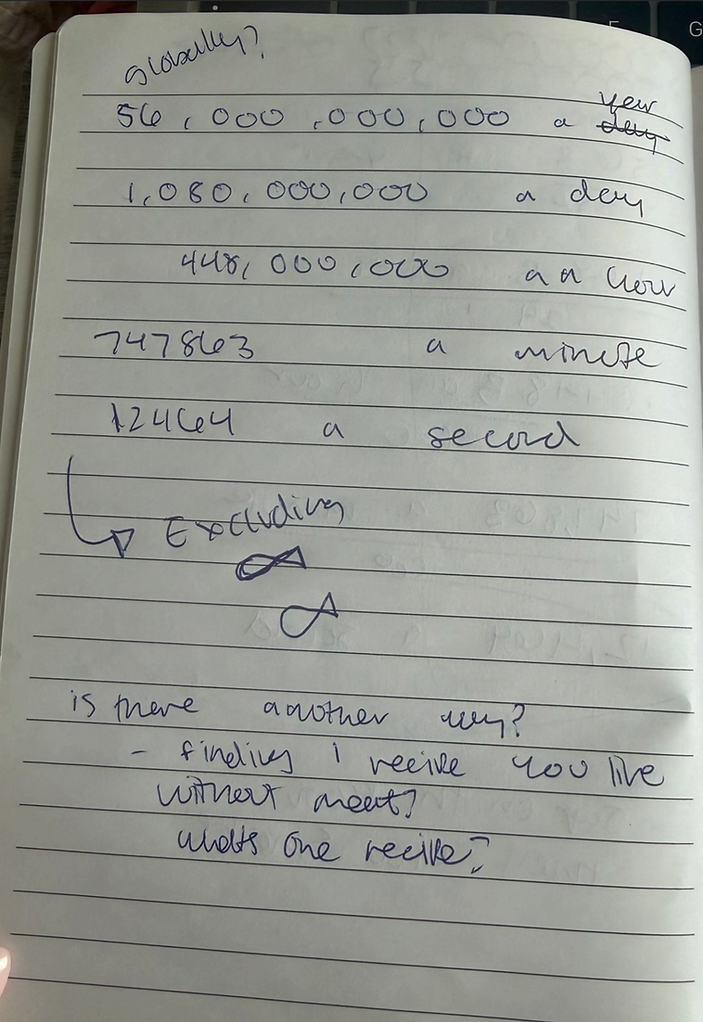 globally?
56,000,000,000 a year day
1,080,000,000 a day
448,000,000 an hour
747863 a minute
12464 a second
Excluding
is there another way?
- finding 1 recipe you like
without meat?
whats one recipe?